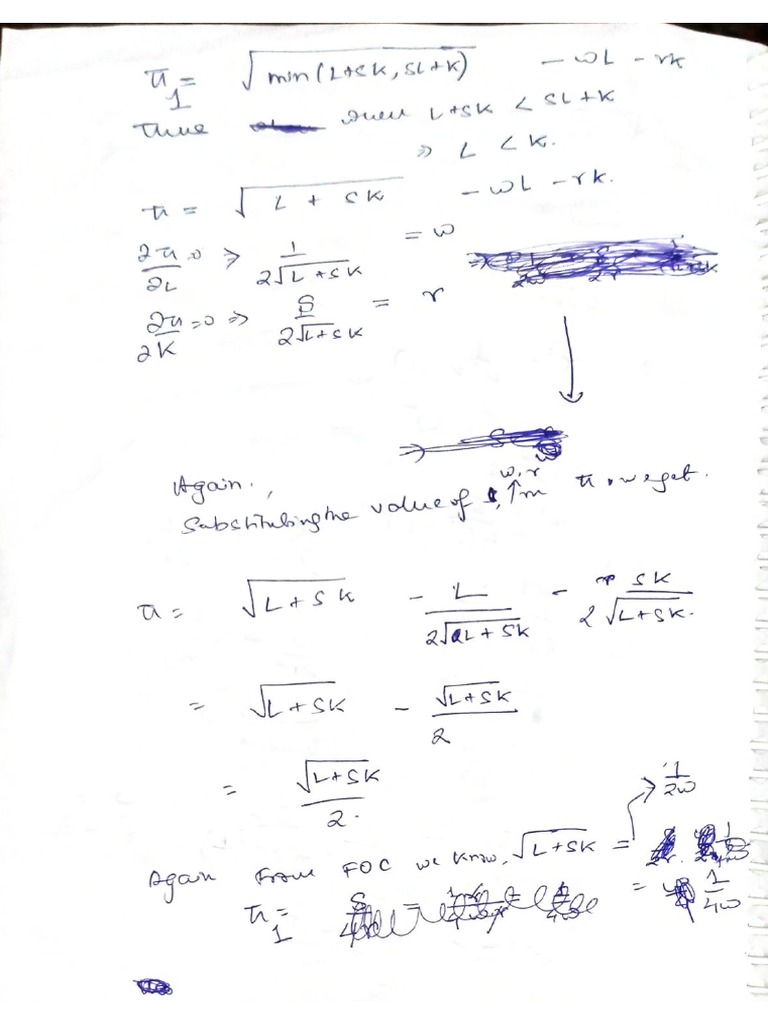 π₁ = √(min(L+SK, SL+K)) - wL - rK
when L+SK < SL+K
⇒ L < K.
π = √(L + SK) - wL - rK.
∂π/∂L = 0 ⇒ 1/(2√(L+SK)) = w
∂π/∂K = 0 ⇒ S/(2√(L+SK)) = r
Again,
Substituting the value of w, r in π, we get.
π = √(L+SK) - L/(2√(L+SK)) - SK/(2√(L+SK)).
= √(L+SK) - √(L+SK)/2
= √(L+SK)/2.
Again From FOC we know, √(L+SK) = 1/2w
π₁ = 1/4w